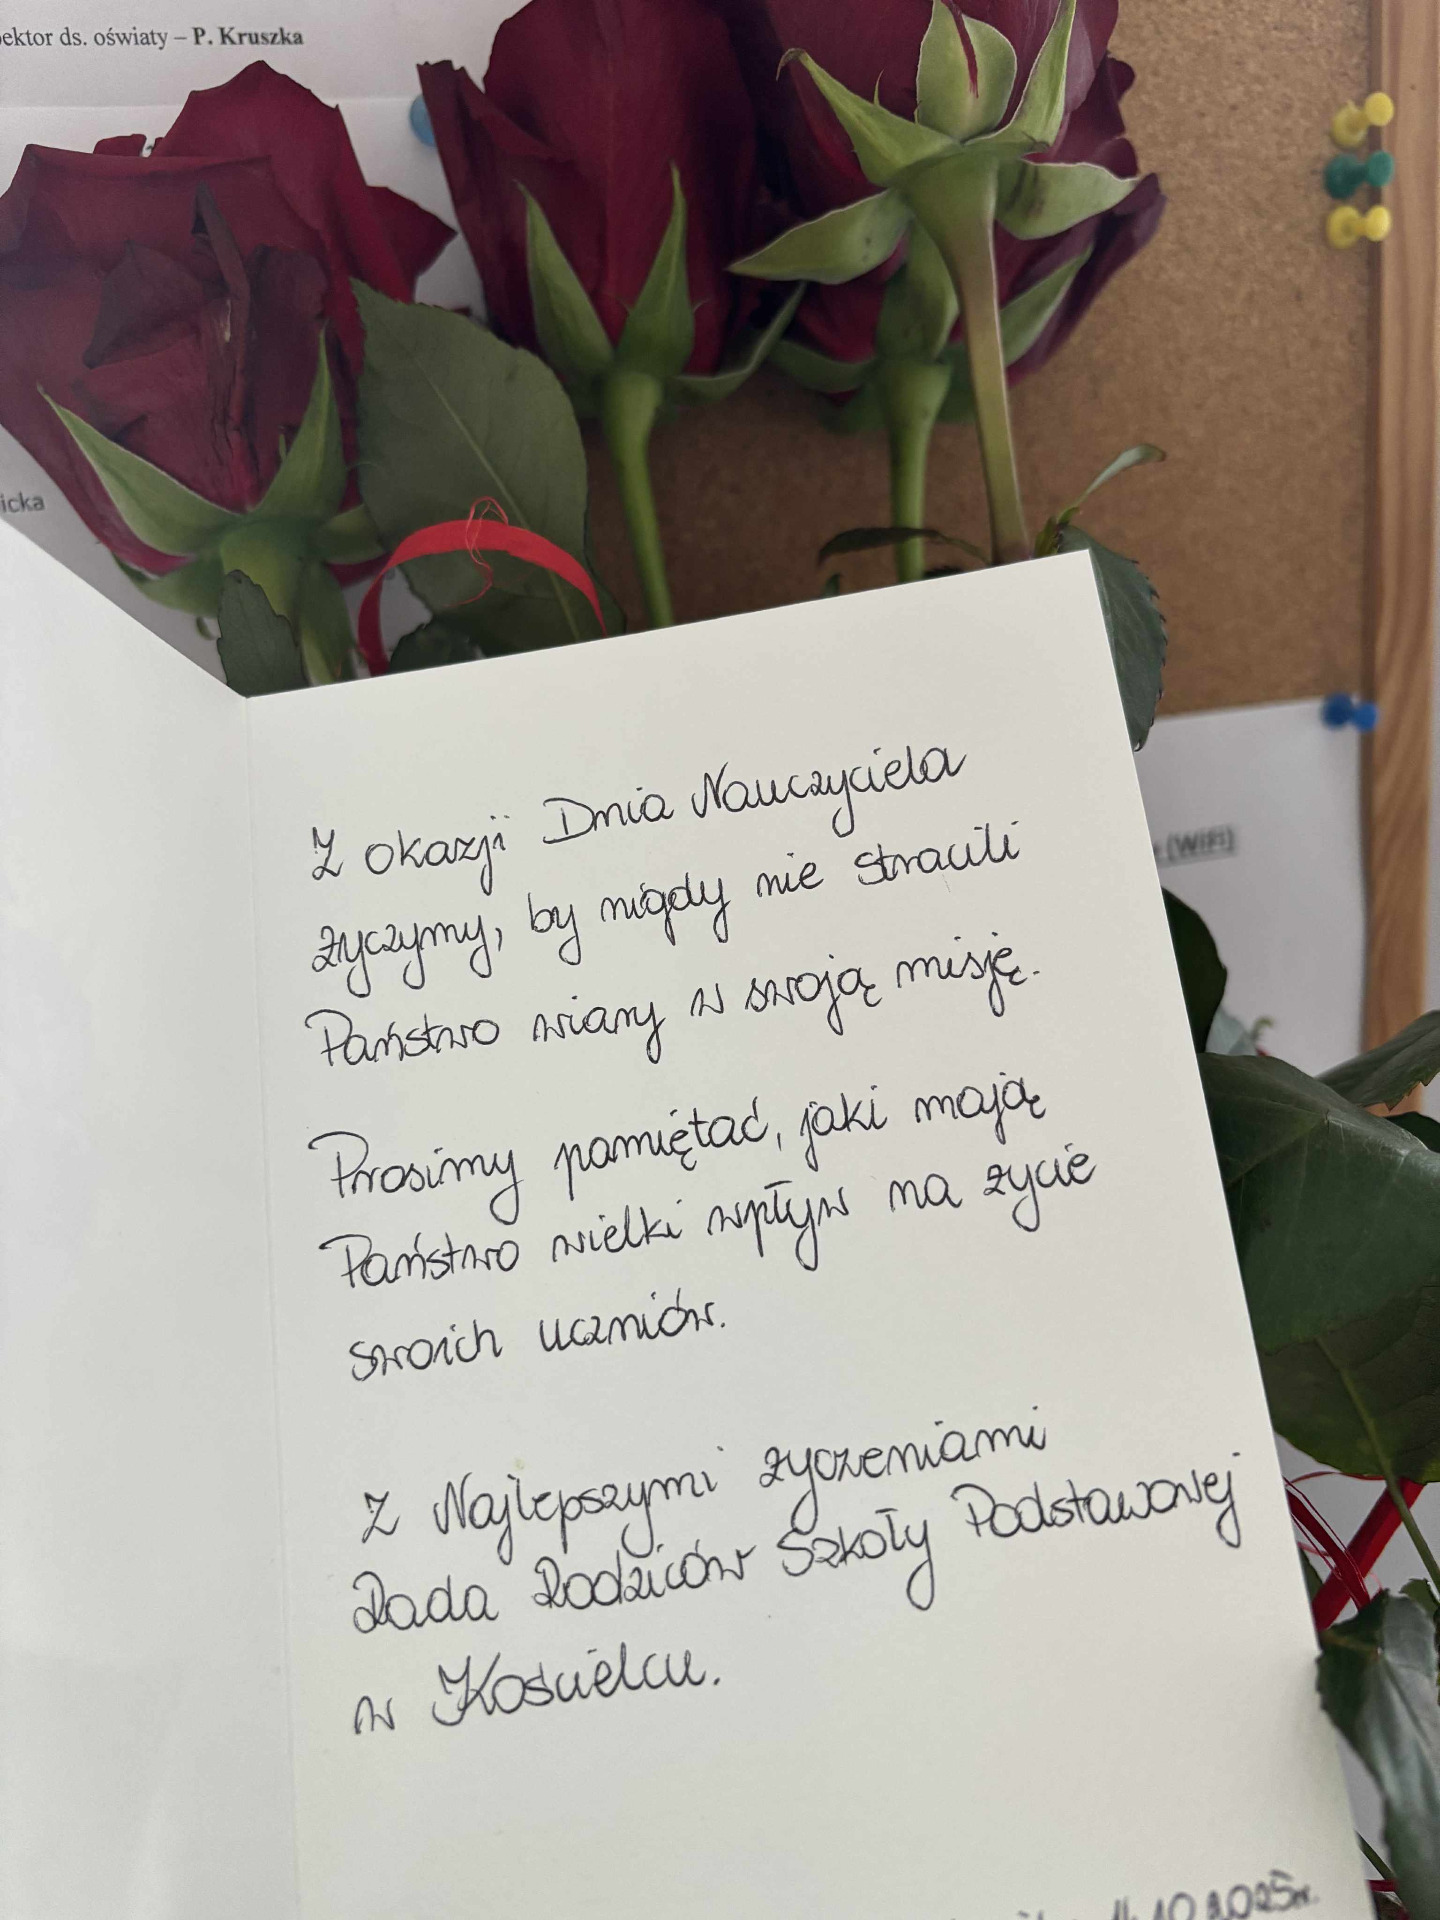 ektor ds. oświaty – P. Kruszka
icka
(WIFI)
Z okazji Dnia Nauczyciela
życzymy, by nigdy nie stracili
Państwo wiary w swoją misję.
Prosimy pamiętać, jaki mają
Państwo wielki wpływ na życie
swoich uczniów.
Z Najlepszymi życzeniami
Rada Rodziców Szkoły Podstawowej
w Kościelcu.
14.10.2025r.